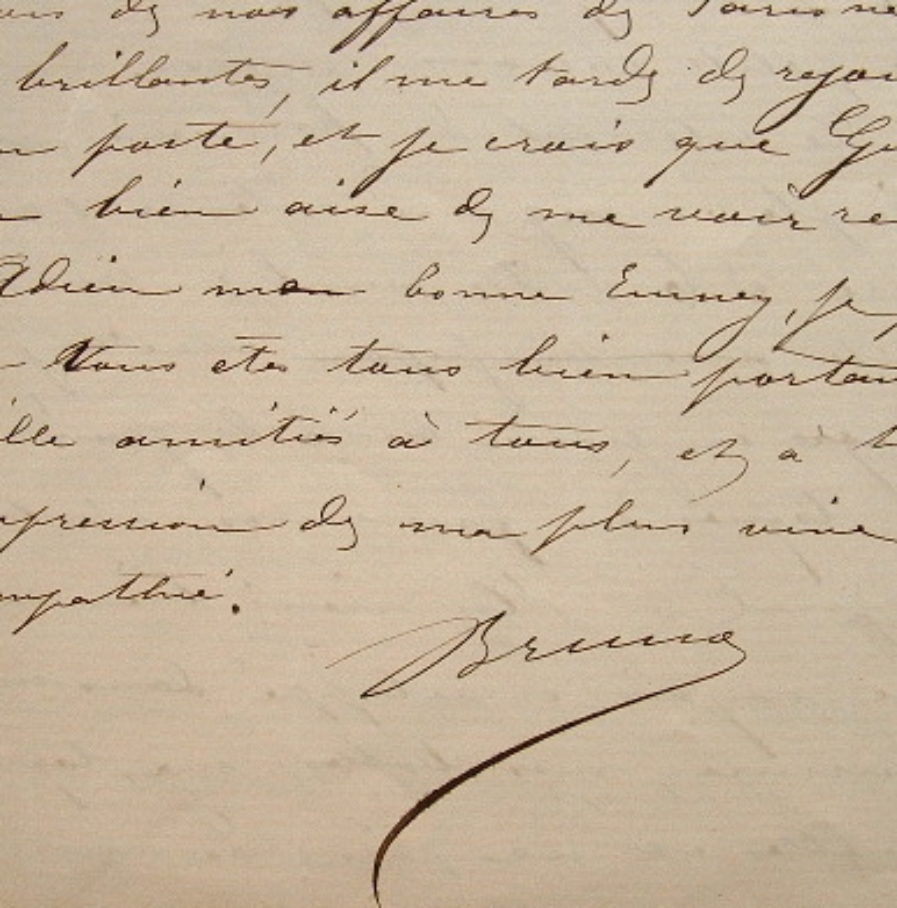 de nos affaires de Paris ne
brillantes, il me tarde de rejoi
poste, et je crois que Gu
bien aise de me voir re
Adieu mon bonne Emmey, je
Vous etes tous bien portan
ille amitiés à tous, et a
pression de ma plus vive
mpathie.
Bruno